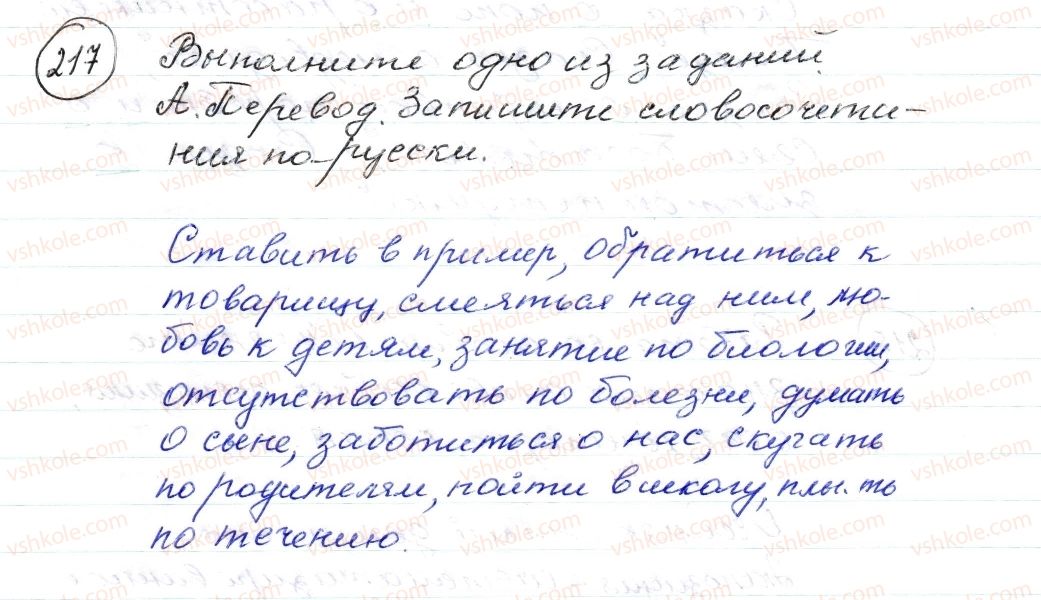 217 Выполните одно из заданий.
А. Перевод. Запишите словосочета-
ния по-русски.
Ставить в пример, обратиться к
товарищу, смеяться над ним, лю-
бовь к детям, занятие по биологии,
отсутствовать по болезни, думать
о сыне, заботиться о нас, скучать
по родителям, пойти в школу, плыть
по течению.